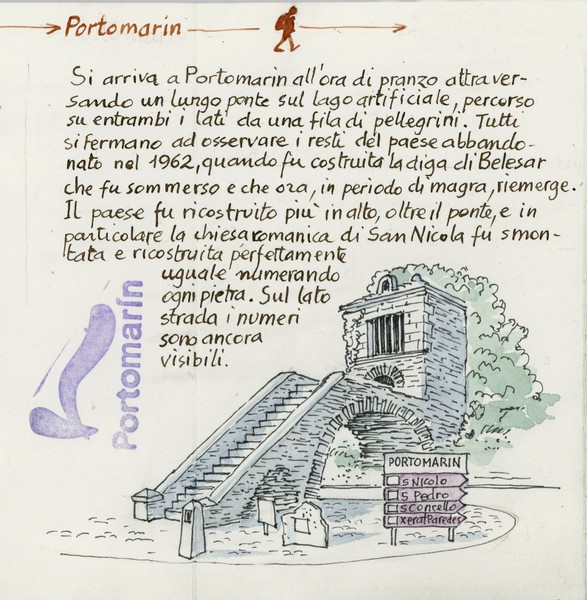 Portomarin
Si arriva a Portomarin all'ora di pranzo attraver-
sando un lungo ponte sul lago artificiale, percorso
su entrambi i lati da una fila di pellegrini. Tutti
si fermano ad osservare i resti del paese abbando-
nato nel 1962, quando fu costruita la diga di Belesar
che fu sommerso e che ora, in periodo di magra, riemerge.
Il paese fu ricostruito più in alto, oltre il ponte, e in
particolare la chiesa romanica di San Nicola fu smon-
tata e ricostruita perfettamente
uguale numerando
ogni pietra. Sul lato
strada i numeri
sono ancora
visibili.
Portomarín
PORTOMARIN
S Nicolo
S Pedro
S Concello
Xerat Paredes